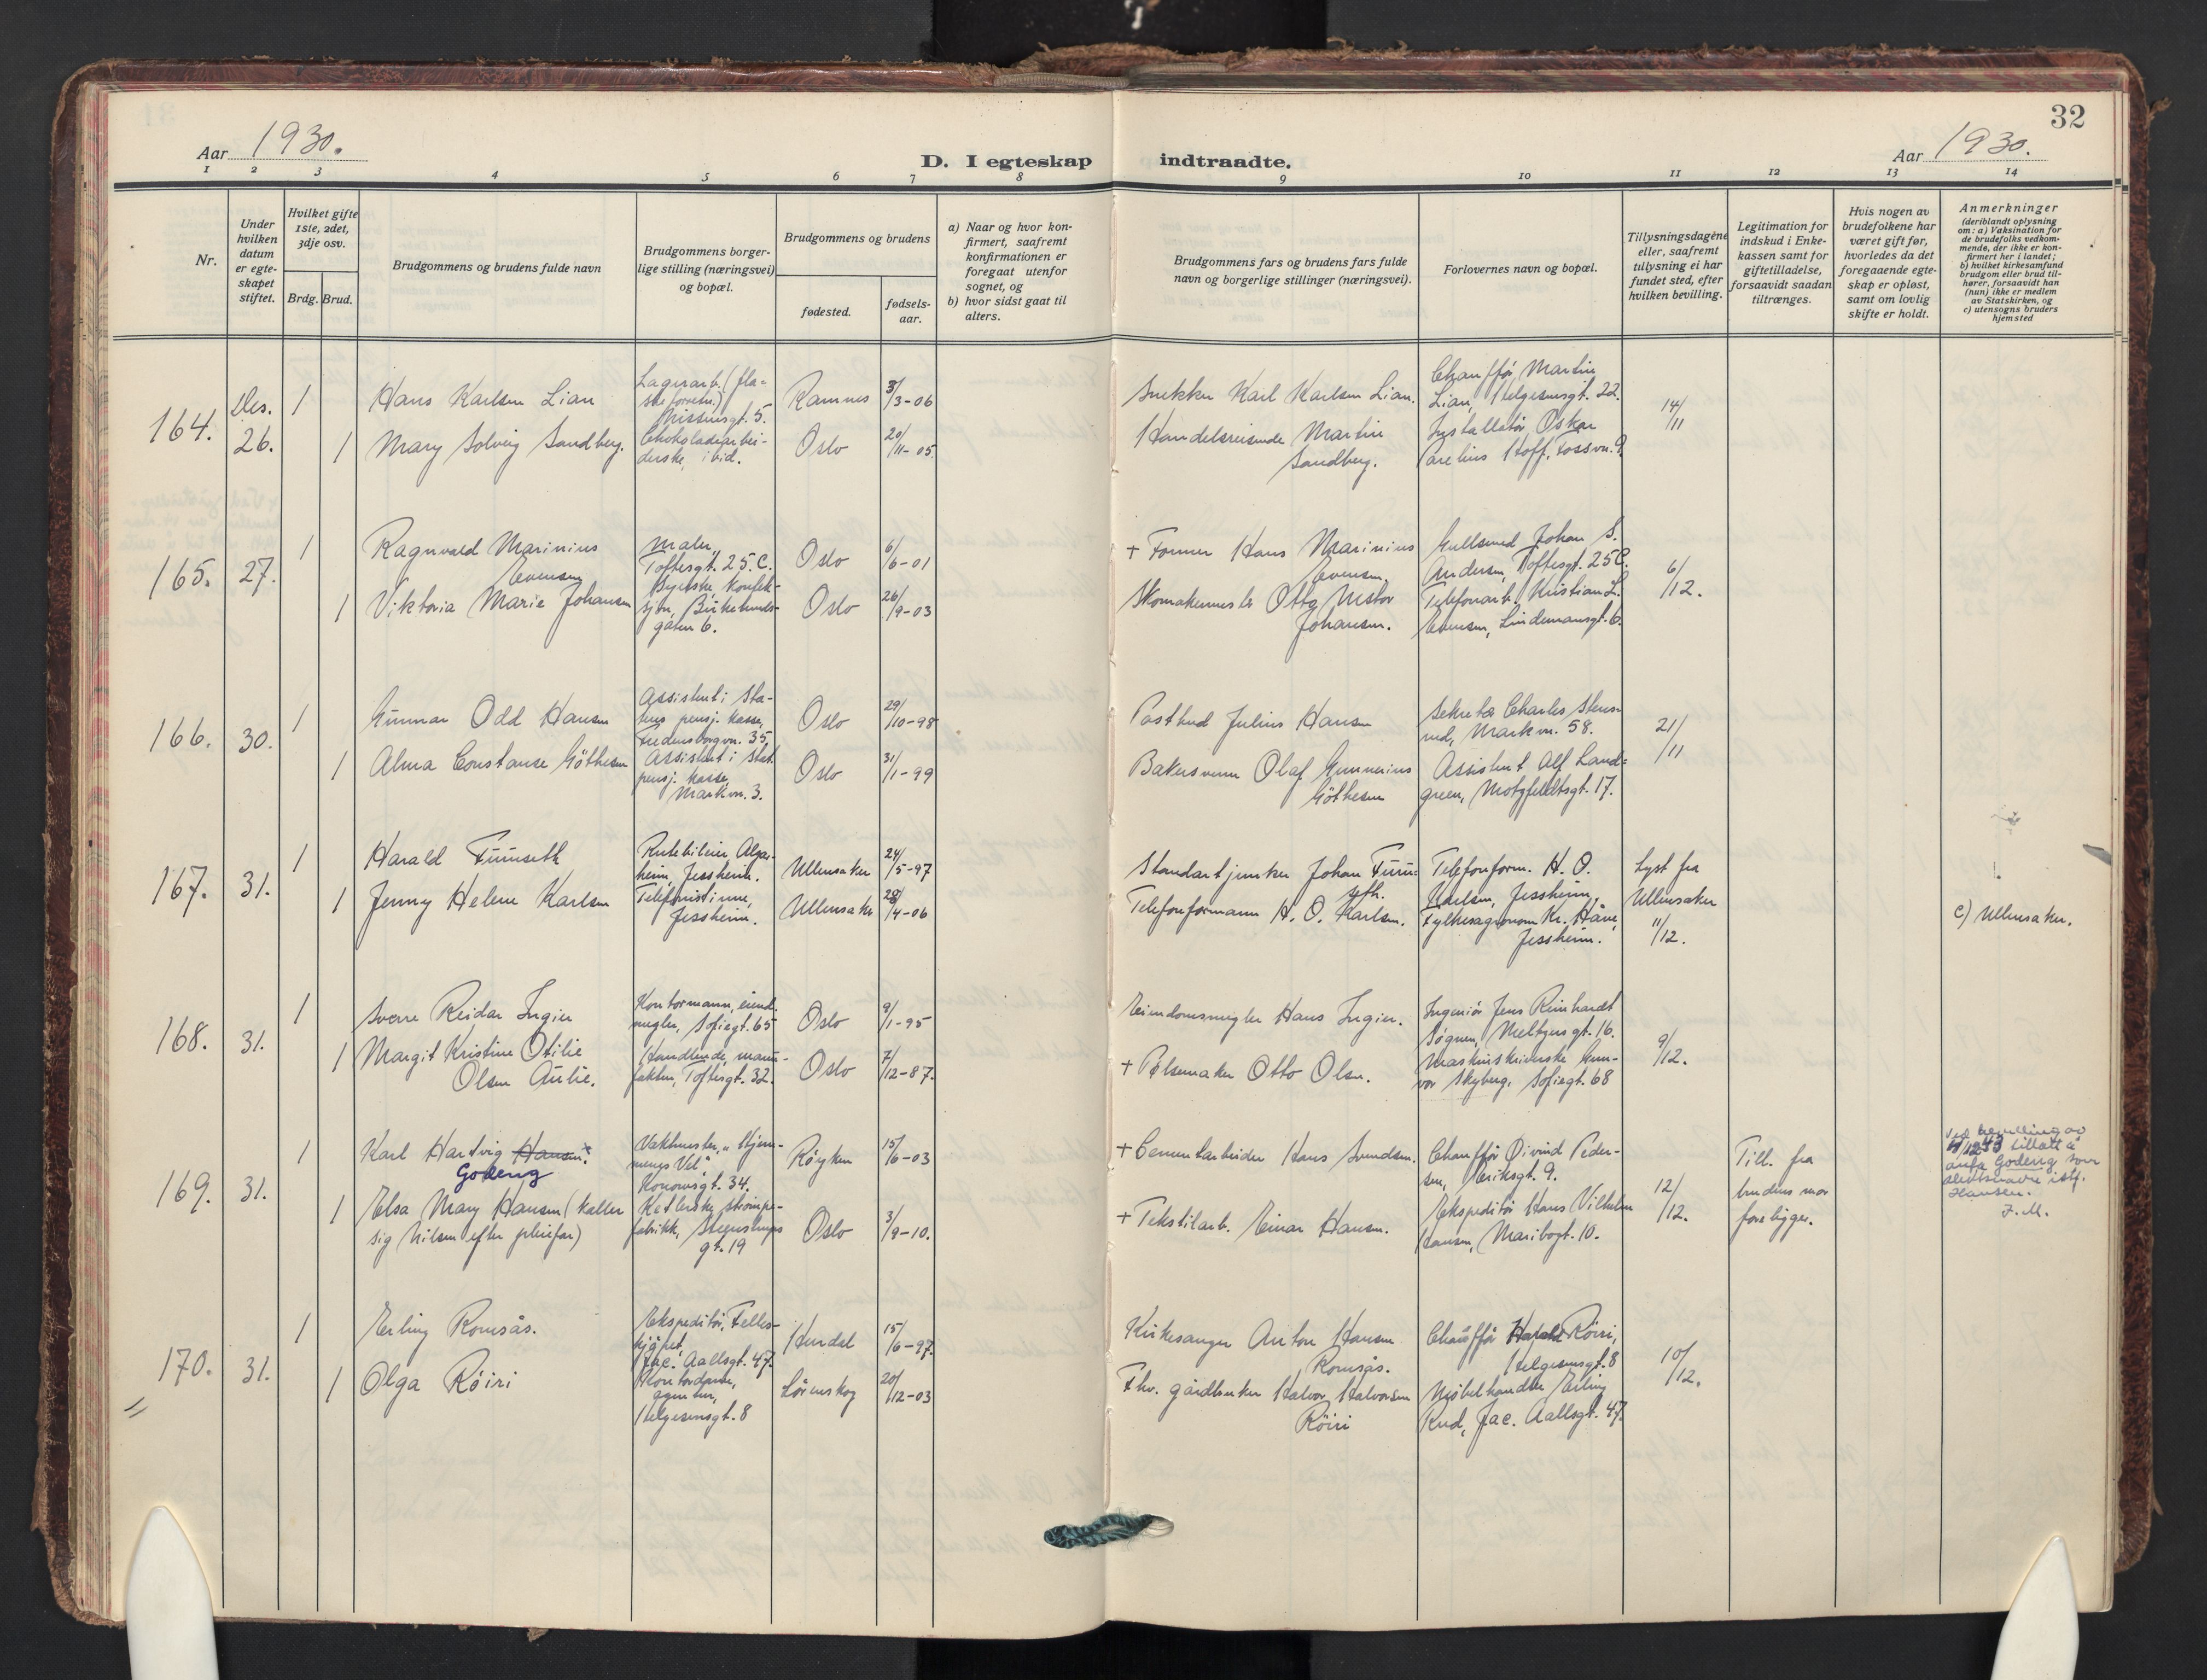 32
Aar 1930.
D. I egteskap indtraadte.
Aar 1930.
1 2 3 4 5 6 7 8 9 10 11 12 13 14
Nr.
Under hvilken datum er egteskapet stiftet.
Hvilket gifte 1ste, 2det, 3dje osv.
Brdg. Brud.
Brudgommens og brudens fulde navn
Brudgommens borgerlige stilling (næringsvei) og bopæl.
Brudgommens og brudens
fødested.
fødselsaar.
a) Naar og hvor konfirmert, saafremt konfirmationen er foregaat utenfor sognet, og
b) hvor sidst gaat til alters.
Brudgommens fars og brudens fars fulde navn og borgerlige stillinger (næringsvei).
Forlovernes navn og bopæl.
Tillysningsdagene eller, saafremt tillysning ei har fundet sted, efter hvilken bevilling.
Legitimation for indskud i Enkekassen samt for giftetilladelse, forsaavidt saadan tiltrænges.
Hvis nogen av brudefolkene har været gift før, hvorledes da det foregaaende egteskap er opløst, samt om lovlig skifte er holdt.
Anmerkninger
(deriblandt oplysning om: a) Vaksination for de brudefolks vedkommende, der ikke er konfirmert her i landet; b) hvilket kirkesamfund brudgom eller brud tilhører, forsaavidt han (hun) ikke er medlem av Statskirken, og c) utensogns bruders hjemsted
164.
Des. 26.
1
Hans Karlsen Lian
Lagerarb. (flaskeforretn.) Nissensgt. 5.
Ramnes
3/3-06
Snekker Karl Karlsen Lian.
Chauffør Martin Lian, Helgesensgt. 22.
14/11
1
Mary Solveig Sandberg.
Chokoladearbeiderske, ibid.
Oslo
20/11-05
Handelsreisende Martin Sandberg.
Installatør Oskar Carelius Hoff, Fossvn. 9.
165.
27.
1
Ragnvald Marinius Evensen
Maler, Toftesgt. 25.C.
Oslo
6/6-01
+ Former Hans Marinius Evensen.
Gullsmed Johan S. Andersen, Toftesgt. 25C.
6/12.
1
Viktoria Marie Johansen
Syerske, konfeksjon, Birkebeinergaten 6.
Oslo
26/9-03
Skomakermester Otto Nestor Johansen.
Telefonarb. Kristian L. Evensen, Lindemansgt. 6.
166.
30.
1
Gunnar Odd Hansen
Assistent i Statens pensj. kasse, Fredensborgvn. 35
Oslo
29/10-98
Postbud Julius Hansen
Sekretær Charles Stensrud, Markvn. 58.
21/11
1
Alma Constanse Göthesen
Assistent i Stat. pensj. kasse, Markvn. 3.
Oslo
31/1-99
Bakersvenn Olaf Gunnerius Göthesen
Assistent Alf Landgreen, Motzfeldtsgt. 17.
167.
31.
1
Harald Furuseth
Rutebileier, Algarheim, Jessheim.
Ullensaker
24/5-97
Standartjunker Johan Furuseth.
Telefonform. H. O. Karlsen, Jessheim,
Lyst fra Ullensaker 11/12.
1
Jenny Helene Karlsen
Telefonistinne, Jessheim.
Ullensaker
28/4-06
Telefonformann H. O. Karlsen.
Fylkesagronom Kr. Håve, Jessheim.
c) Ullensaker.
168.
31.
1
Sverre Reidar Ingier
Kontormann, eiend. megler, Sofiegt. 65
Oslo
9/1-95
Eiendomsmegler Hans Ingier.
Ingeniør Jens Reinhardt Søgnen, Meltzersgt. 16.
9/12.
1
Margit Kristine Otilie Olsen Aulie.
Handlende, manufaktur, Toftesgt. 32.
Oslo
7/12-87.
+ Pølsemaker Otto Olsen.
Maskinskriverske Gunvor Skyberg, Sofiegt. 68
169.
31.
1
Karl Hartvig Hansen. Godeng
Vaktmester, "Hjemmenes Vel", Konowsgt. 34.
Røyken
15/6-03
+ Cementarbeider Hans Svendsen.
Chauffør Øivind Pedersen, Eriksgt. 9.
12/12.
Till. fra brudens mor foreligger.
Ved bevilling av 11/12 43 tillatt å anta Godeng som slektsnavn istf. Hansen.
J. M.
1
Elsa Mary Hansen (kaller sig Nilsen efter pleiefar)
Ketlerske, strømpefabrikk, Steenstrups gt. 19
Oslo
3/9-10.
+ Tekstilarb. Einar Hansen.
Ekspeditør Hans Vilhelm Hansen, Maribogt. 10.
170.
31.
1
Erling Romsås.
Ekspeditør, Felleskjøpet, Jac. Aallsgt. 47.
Hurdal
15/6-97.
Kirkesanger Anton Hansen Romsås.
Chauffør Harald Röiri, Helgesensgt. 8
10/12.
1
Olga Röiri
Kontordame, agentur, Helgesensgt. 8
Lørenskog
20/12-03
Fhv. gårdbruker Halvor Halvorsen Röiri
Møbelhandler Erling Rud, Jac. Aallsgt. 47.